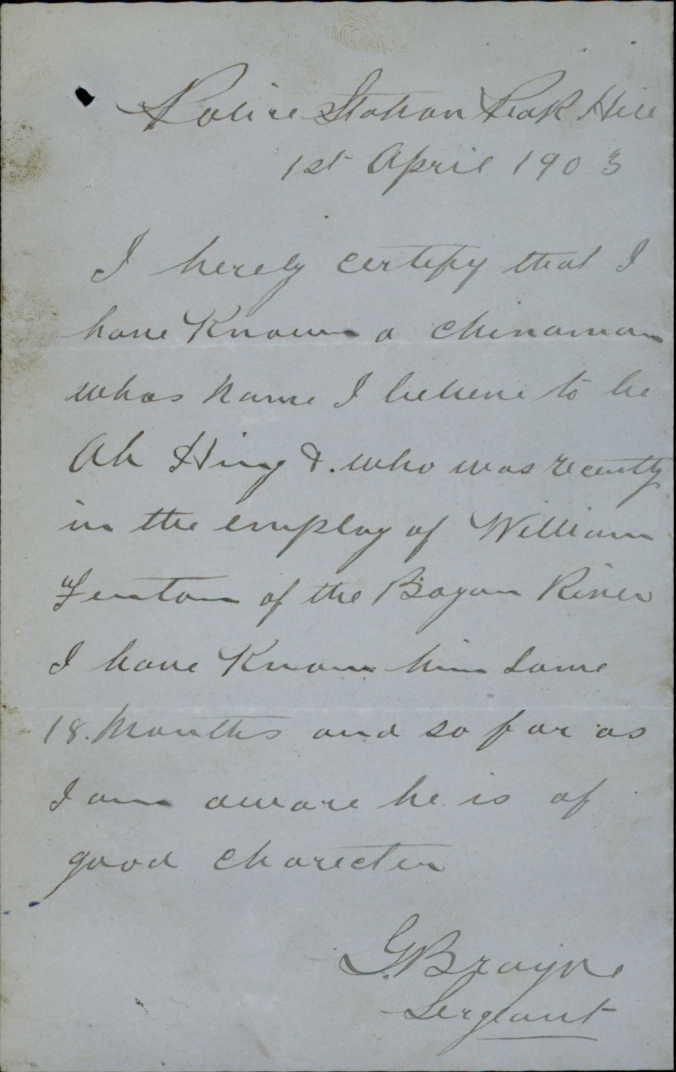 Police Station Peak Hill
1st April 1903
I hereby certify that I
have Known a Chinaman
whos name I believe to be
Ah Hing &. who was recently
in the employ of William
Fenton of the Bogan River
I have Known him some
18. Months and so far as
I am aware he is of
good charecter
G. Brayne
Sergeant